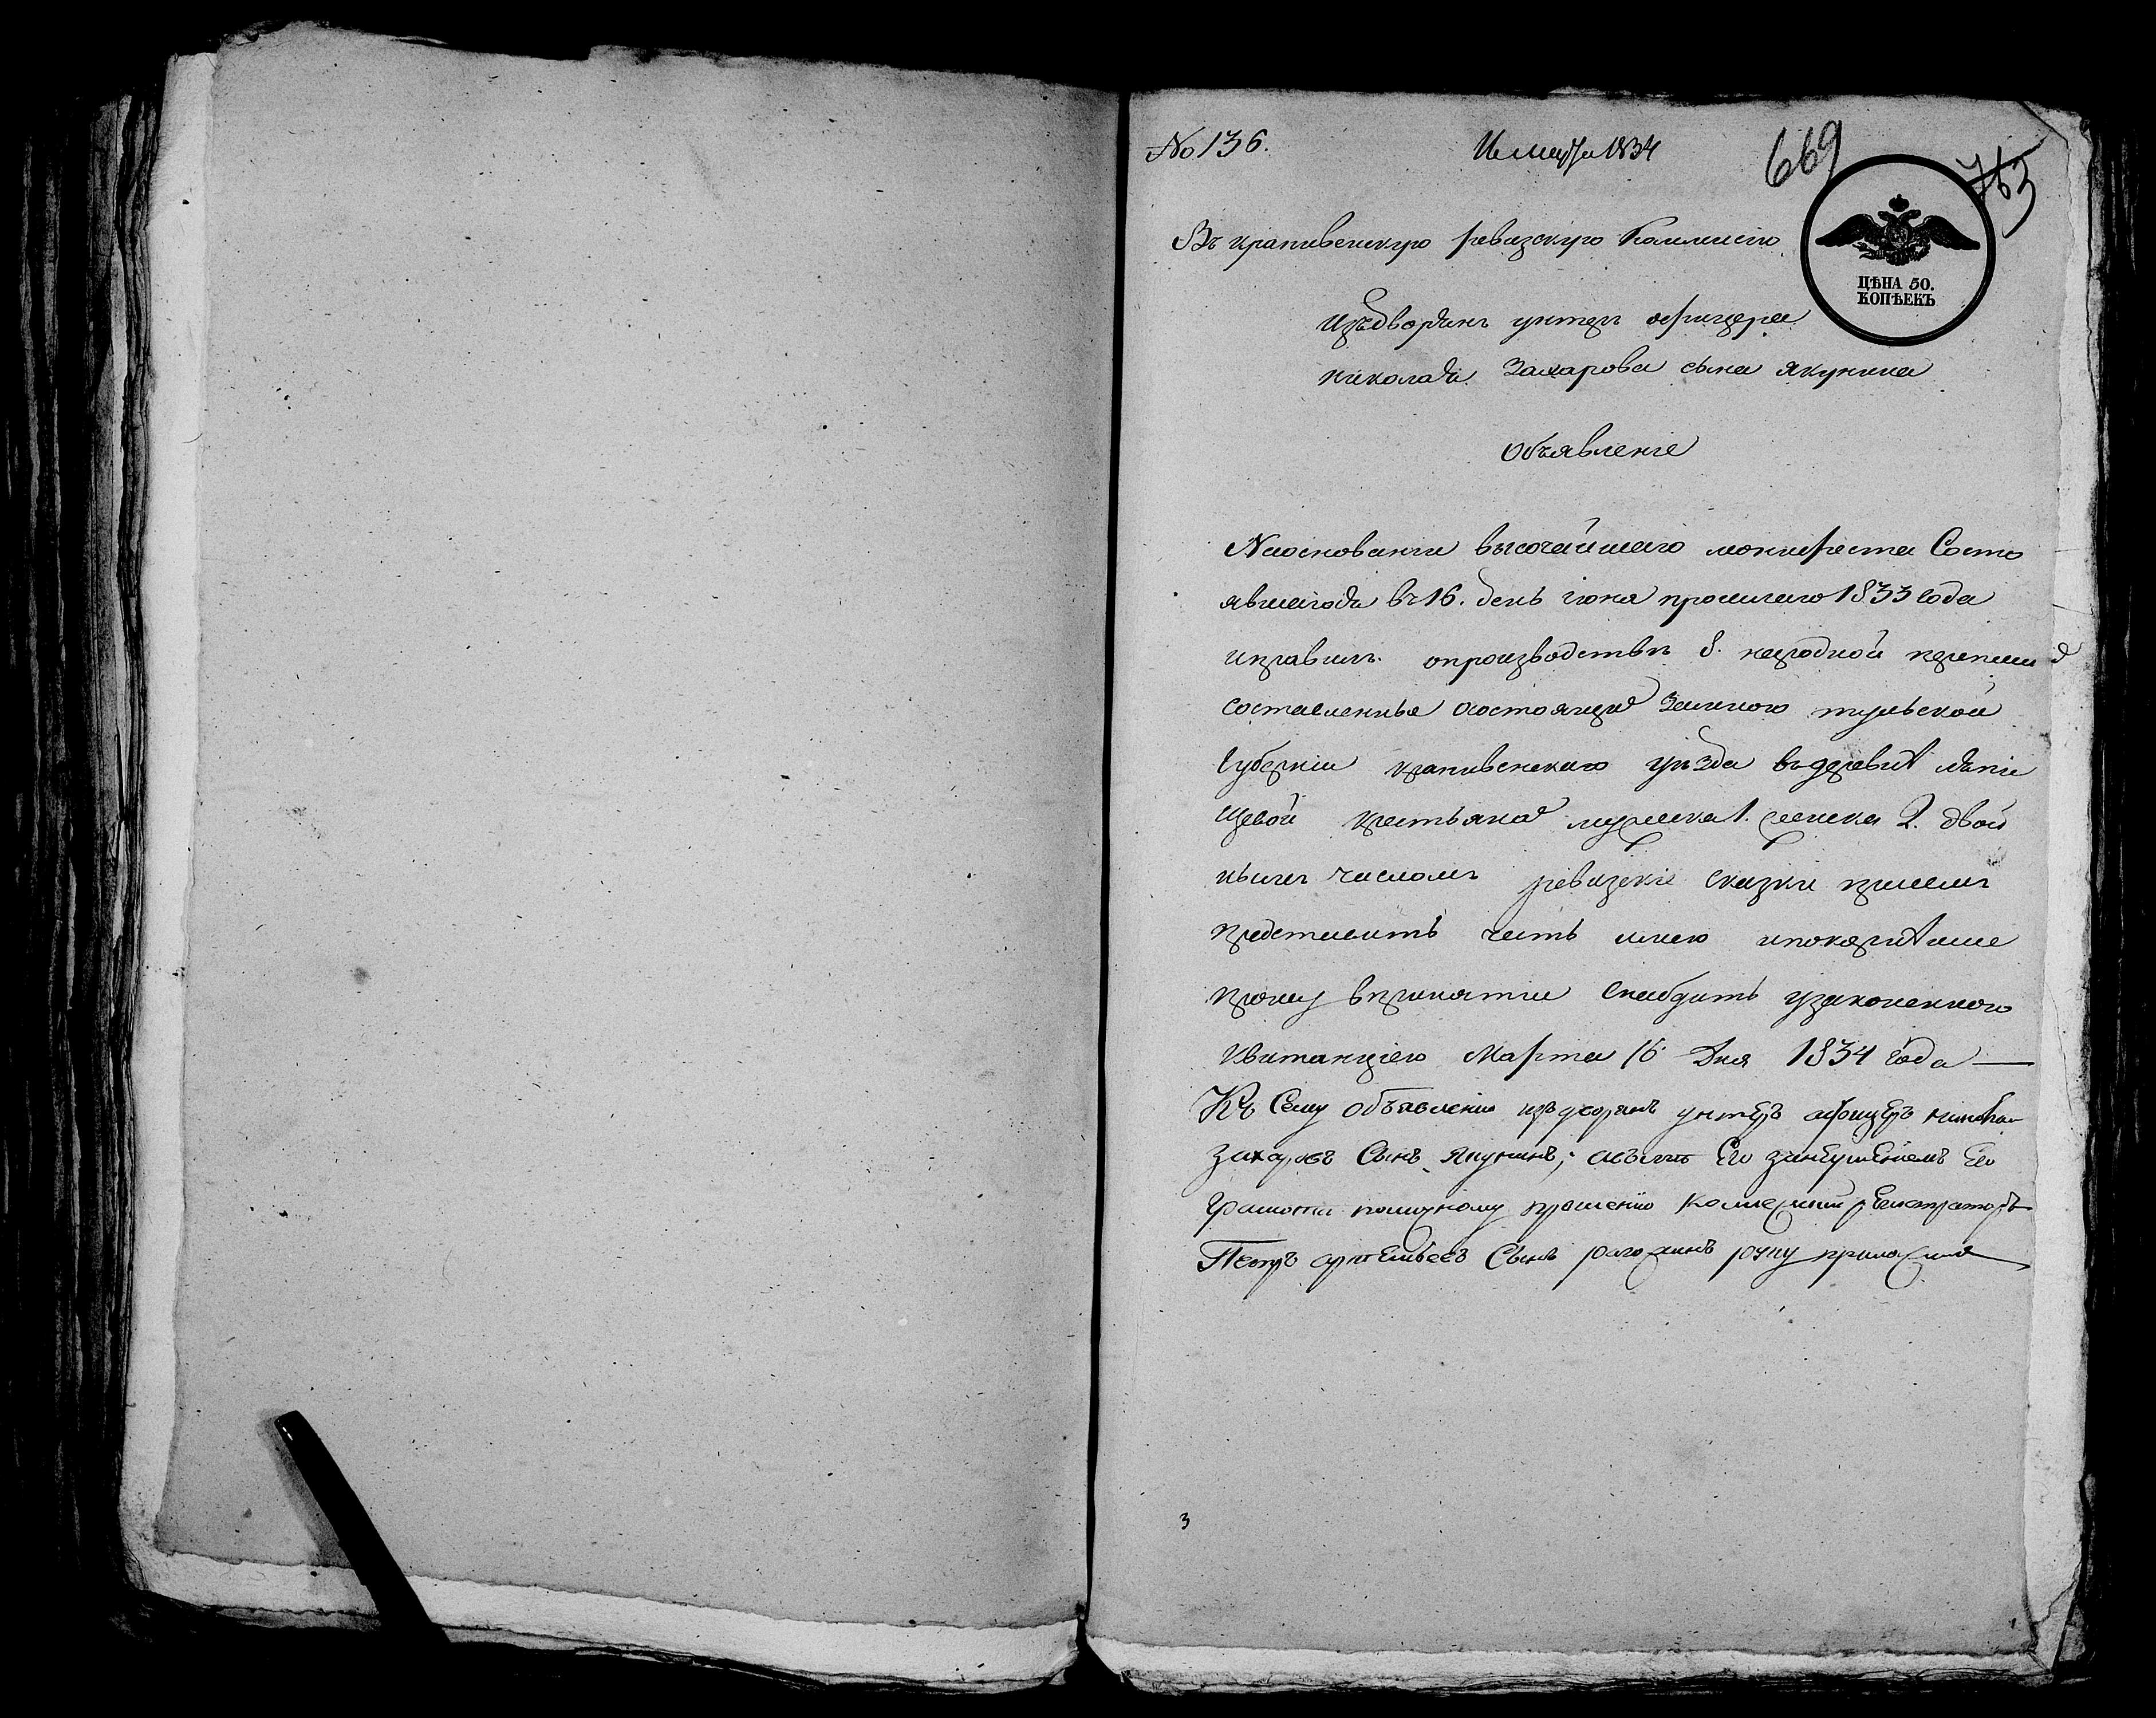 № 136.
Марта 1834
669
763
ЦѢНА 50.
КОПѢЕКЪ
Въ крапивенскую ревизскую Коммисію
Изъдворянъ унтеръ офицера
николая Захарова сына якунина
Объявленіе
Наоснованіи высочайшаго монифеста Состо
явшагося въ 16. день іюня прошлаго 1833 года
иправилъ опроизводствѣ 8. народной переписи
составленные осостоящие Замною тульской
Губерніи крапивенскаго уѣзда въдеревнѣ
щевой крестьяна мужеска 1. женска 2. двой
нымъ числомъ ревизскіе сказки присемъ
представить честь имею ипокорнѣише
прошу впринятіи Снабдить узаконенною
Квитанціею Марта 16 Дня 1834 года —
Къ Сему объявлению издворянъ унтеръ афицеръ николай
захаровъ Сынъ якунинъ; авъместо Его занеумениемъ Его
грамоты полнчному прошению колежский регистраторъ
Петръ артемьевъ Сынъ рагожинъ руку приложилъ
3